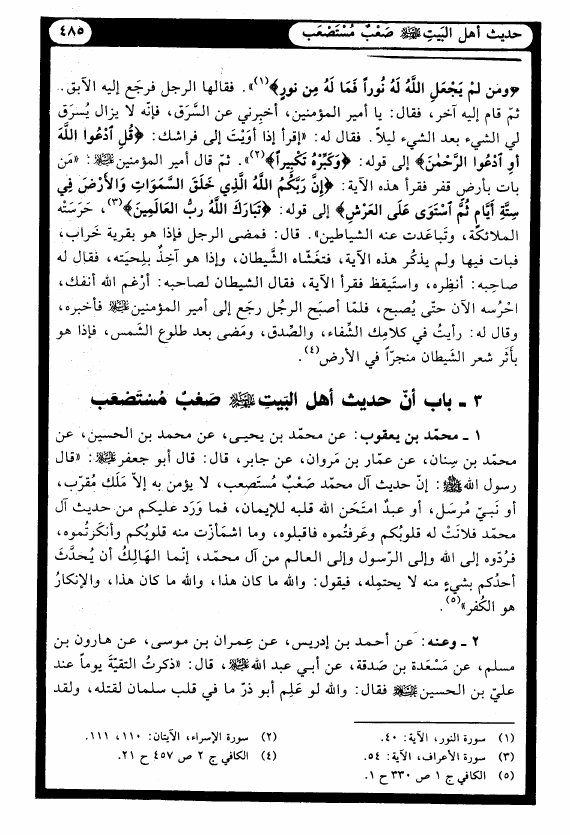 حديث أهل البَيتِ عليهم السلام صَعْبٌ مُسْتَصْعَب
٤٨٥
﴿ومَن لمْ يَجْعَلِ اللَّهُ لَهُ نُوراً فَمَا لَهُ مِن نورٍ﴾(١)». فقالها الرجل فرجَع إليه الآبق.
ثمّ قام إليه آخر، فقال: يا أمير المؤمنين، أخبِرني عن السَّرَق، فإنّه لا يزال يُسرَق
لي الشيء بعد الشيء ليلاً. فقال له: «إقرأ إذا أوَيْتَ إلى فراشك: ﴿قُلِ ٱدْعُوا اللَّهَ
أوِ ٱدْعُوا الرَّحْمٰنَ﴾ إلى قوله: ﴿وَكَبِّرْهُ تَكْبِيراً﴾(٢)». ثمّ قال أمير المؤمنين عليه السلام: «مَن
بات بأرضٍ قفر فقرأ هذه الآية: ﴿إِنَّ رَبَّكُمُ اللَّهُ الَّذِي خَلَقَ السَّمَوَاتِ وَالأَرْضَ فِي
سِتَّةِ أَيَّامٍ ثُمَّ ٱسْتَوَى عَلَى العَرْشِ﴾ إلى قوله: ﴿تَبَارَكَ اللَّهُ ربُّ العَالَمِينَ﴾(٣)، حَرَسَتْه
الملائكة، وتَباعَدت عنه الشياطين». قال: فمضى الرجل فإذا هو بقرية خَراب،
فبات فيها ولم يذكُر هذه الآية، فتغشّاه الشَّيطان، وإذا هو آخِذٌ بلِحيَته، فقال له
صاحِبه: أنظِره، واستَيقظ فقرأ الآية، فقال الشيطان لصاحبه: أرْغم الله أنفك،
احْرُسه الآن حتّى يُصبح، فلمّا أصبَح الرجُل رجَع إلى أمير المؤمنين عليه السلام فأخبره،
وقال له: رأيتُ في كلامِك الشِّفاء، والصِّدق، ومَضى بعد طلوع الشمس، فإذا هو
بأثَر شعر الشَّيطان منجرّاً في الأرض(٤).
٣ ـ باب أنّ حديث أهل البَيتِ عليهم السلام صَعْبٌ مُسْتَصْعَب
١ ـ محمّد بن يعقوب: عن محمّد بن يحيى، عن محمد بن الحسين، عن
محمّد بن سِنان، عن عمّار بن مَروان، عن جابر، قال: قال أبو جعفر عليه السلام: «قال
رسول الله صلى الله عليه وآله: إنّ حديث آل محمّد صَعْبٌ مُستَصعب، لا يؤمن به إلاّ مَلَك مُقرَّب،
أو نَبيّ مُرسَل، أو عبدٌ امتَحَن الله قلبه للإيمان، فما وَرَد عليكم من حديث آل
محمّد فلانَتْ له قلوبُكم وعَرفتُموه فاقبلوه، وما اشمَأزّت منه قلوبكم وأنكَرتُموه،
فرُدّوه إلى الله وإلى الرّسول وإلى العالم من آل محمّد، إنّما الهَالِكُ أن يُحدَّث
أحدُكم بشيءٍ منه لا يحتمِله، فيقول: والله ما كان هذا، والله ما كان هذا، والإنكارُ
هو الكُفر»(٥).
٢ ـ وعنه: عن أحمد بن إدريس، عن عِمران بن موسى، عن هارون بن
مسلم، عن مَسْعَدة بن صَدَقة، عن أبي عبد الله عليه السلام، قال: «ذكرتُ التقيّة يوماً عند
عليّ بن الحسين عليه السلام فقال: والله لو عَلِم أبو ذرّ ما في قلب سلمان لقتله، ولقد
(١) سورة النور، الآية: ٤٠.
(٢) سورة الإسراء، الآيتان: ١١٠، ١١١.
(٣) سورة الأعراف، الآية: ٥٤.
(٤) الكافي ج ٢ ص ٤٥٧ ح ٢١.
(٥) الكافي ج ١ ص ٣٣٠ ح ١.